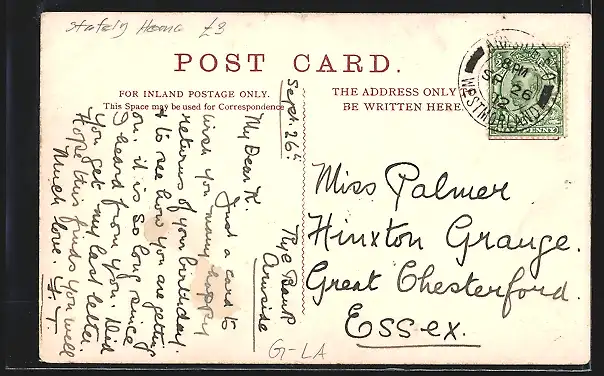 Stately Home £3
POST CARD.
FOR INLAND POSTAGE ONLY.
This Space may be used for Correspondence
THE ADDRESS ONLY
BE WRITTEN HERE.
ARNSIDE
8 PM
SP 26
12
WESTMORLAND
PENNY
Sept. 26th
Rye Bank
Arnside
My Dear K.
Just a card to
wish you many happy
returns of your birthday.
& to see how you are getting
on. it is so long since
I heard from you. Did
you get my last letter.
Hope this finds you well
Much love.
Miss Palmer
Hinxton Grange.
Great Chesterford.
Essex.
G-LA